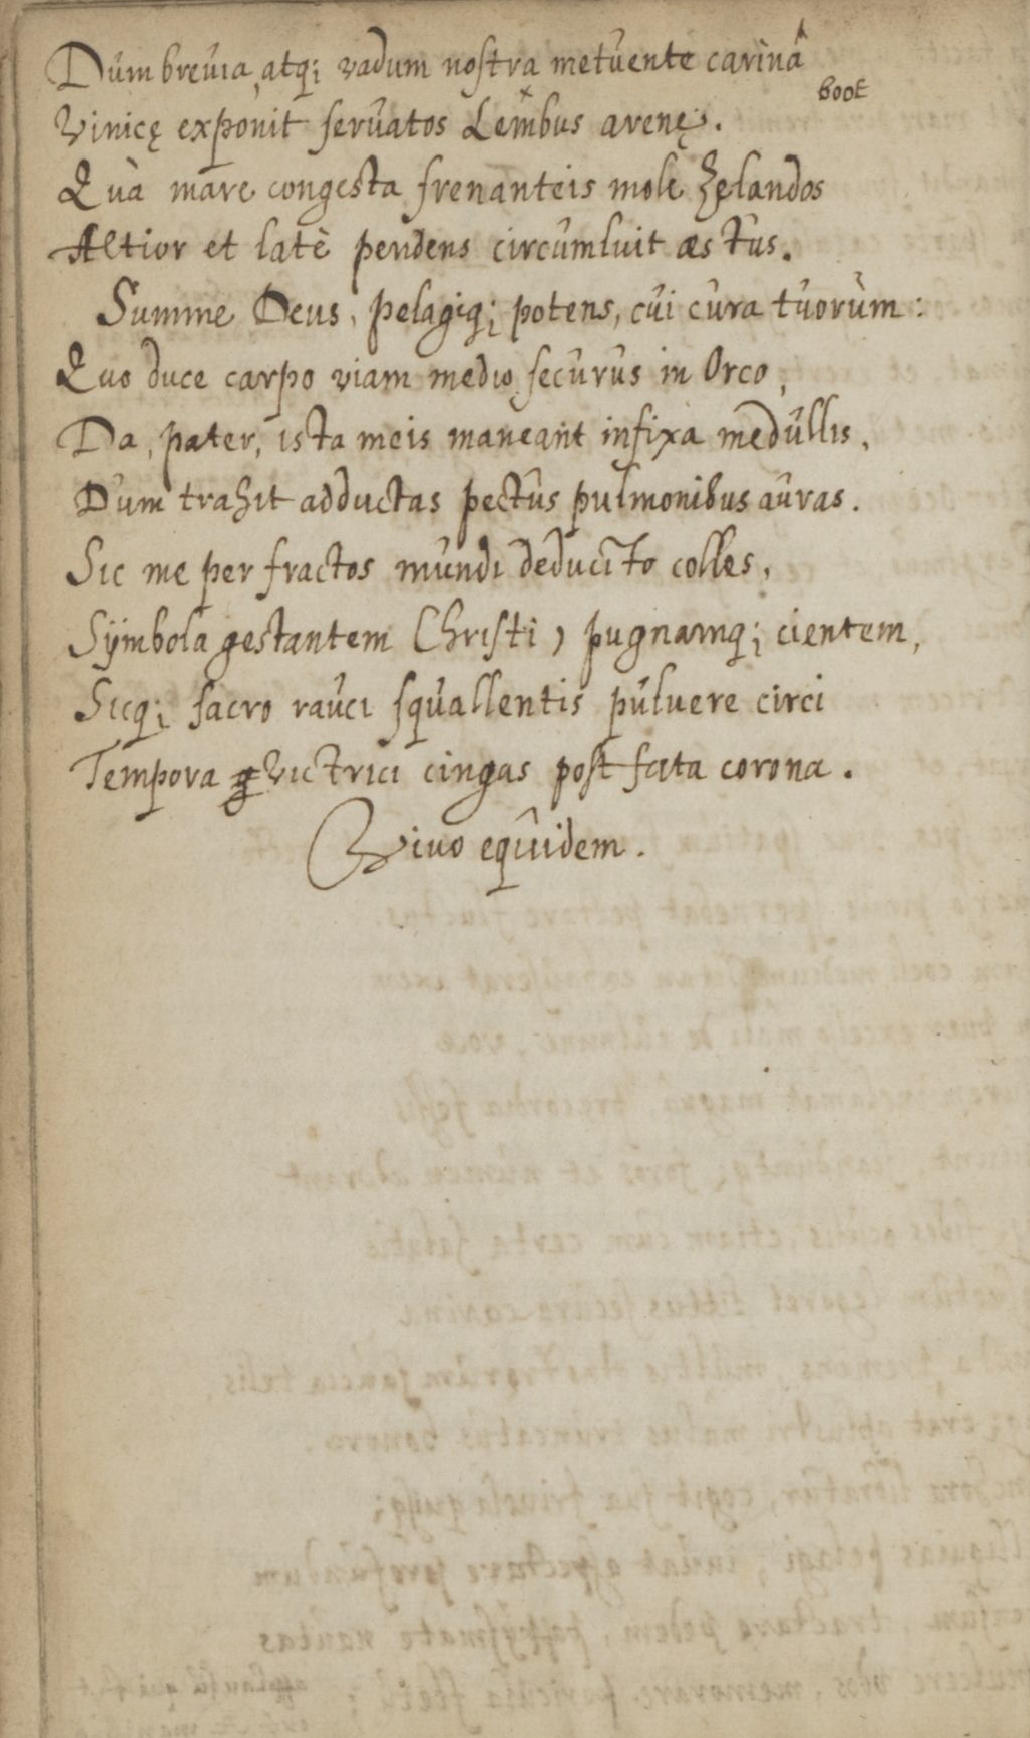 Dum brevia, atq; vadum nostra metuente carinâ
boot
Vinicę exponit servatos Lembus arenę.
Quà mare congesta frenanteis mole Zelandos
Altior et latè pendens circumluit æstus.
Summe Deus, pelagiq; potens, cui cura tuorùm:
Quo duce carpo viam medio securus in Orco,
Da, pater, ista meis maneant infixa medullis,
Dum trahit adductas pectus pulmonibus auras.
Sic me per fractos mundi deducito colles,
Sÿmbola gestantem Christi, pugnamq; cientem,
Sicq; sacro rauci squallentis puluere circi
Tempora victrici cingas post fata corona.
Vivo equidem.